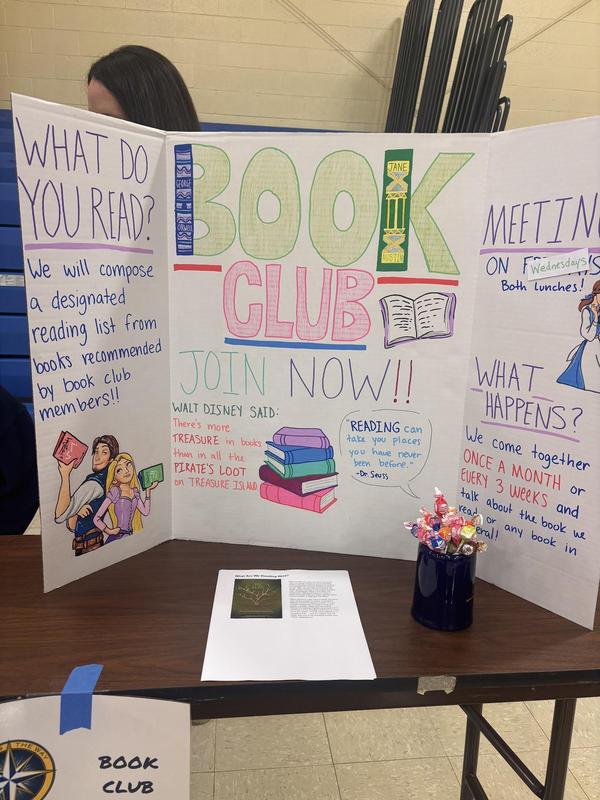 WHAT DO
YOU READ?
We will compose
a designated
reading list from
books recommended
by book club
members!!
GEORGE
ORWELL
BOOK
JANE
AUSTIN
CLUB
JOIN NOW!!
WALT DISNEY SAID:
There's more
TREASURE in books
than in all the
PIRATE'S LOOT
on TREASURE ISLAND
"READING can
take you places
you have never
been before."
-Dr. Seuss
MEETING
ON
Wednesdays
Both Lunches!
WHAT
HAPPENS?
We come together
ONCE A MONTH or
EVERY 3 WEEKS and
talk about the book we
read or any book in
eral!
What Are We Reading Next?
THE WAY
BOOK
CLUB